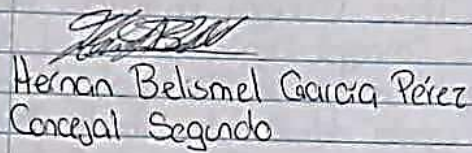 Hernan Belismel García Pérez
Concejal Segundo